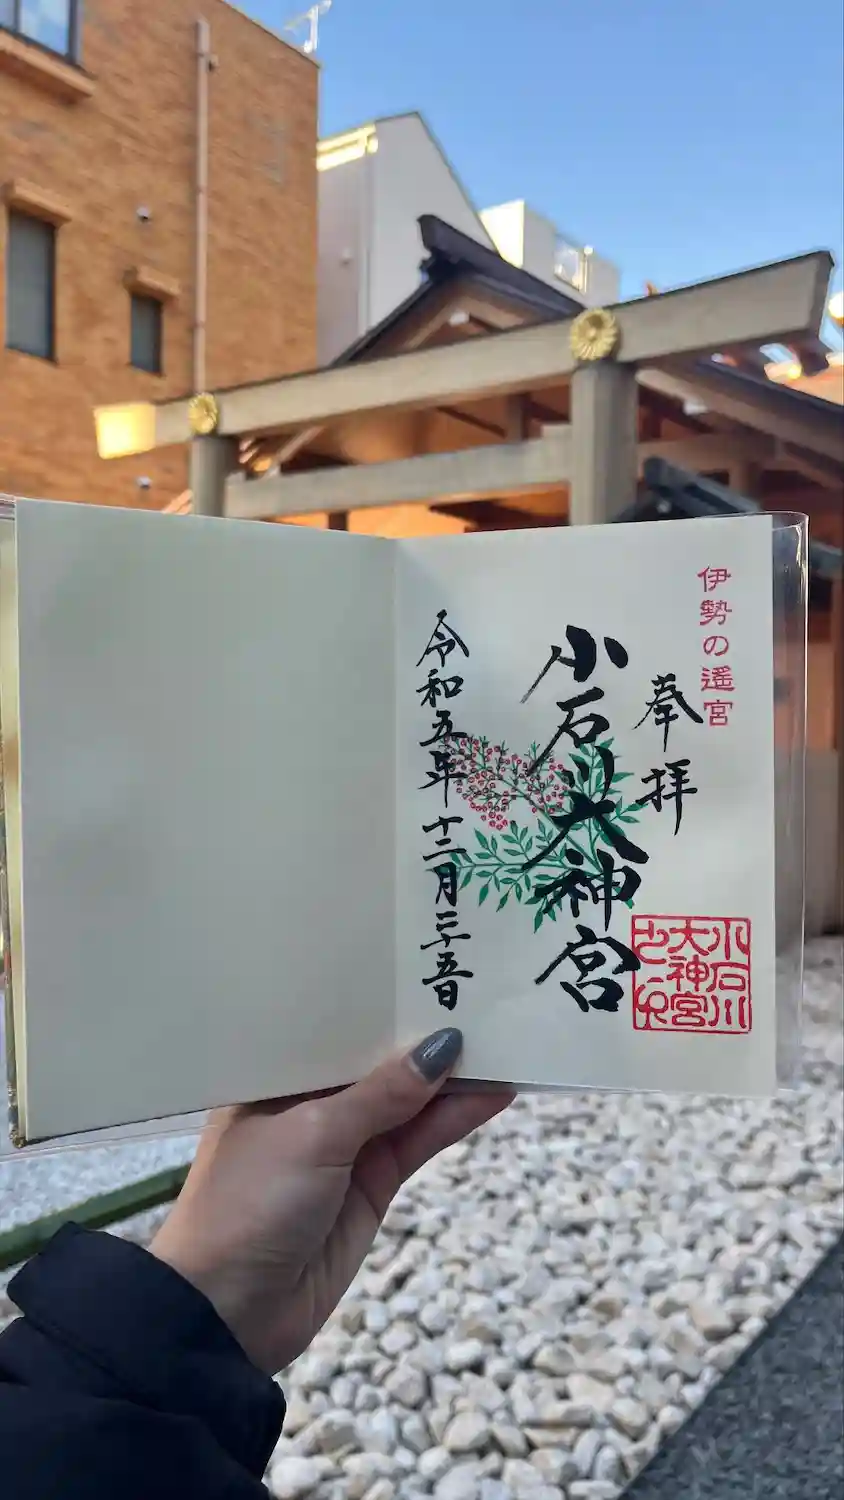 伊勢の遙宮
奉拝
小石川大神宮
小石川
大神宮
之印
令和五年十二月二十五日